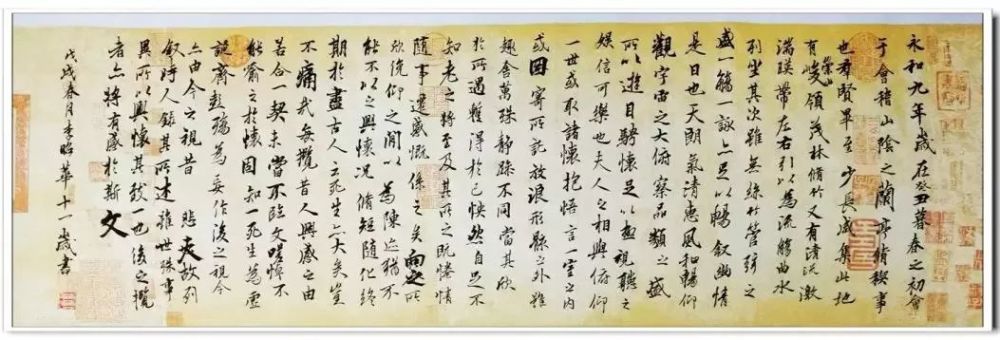 永和九年歲在癸丑暮春之初會
于會稽山陰之蘭亭脩稧事
也羣賢畢至少長咸集此地
有崇山峻領茂林脩竹又有清流激
湍暎帶左右引以為流觴曲水
列坐其次雖無絲竹管弦之
盛一觴一詠亦足以暢叙幽情
是日也天朗氣清惠風和暢仰
觀宇宙之大俯察品類之盛
所以遊目騁懷足以極視聽之
娛信可樂也夫人之相與俯仰
一世或取諸懷抱悟言一室之内
或因寄所託放浪形骸之外雖
趣舍萬殊静躁不同當其欣
於所遇蹔得於己怏然自足不
知老之將至及其所之既惓情
隨事遷感慨係之矣向之所
欣俛仰之閒以為陳迹猶不
能不以之興懷況脩短隨化終
期於盡古人云死生亦大矣豈
不痛哉每攬昔人興感之由
若合一契未嘗不臨文嗟悼不
能喻之於懷固知一死生為虛
誕齊彭殤為妄作後之視今
亦由今之視昔悲夫故列
叙時人錄其所述雖世殊事
異所以興懷其致一也後之攬
者亦將有感於斯文
戊戌春月李昭華十一歲書